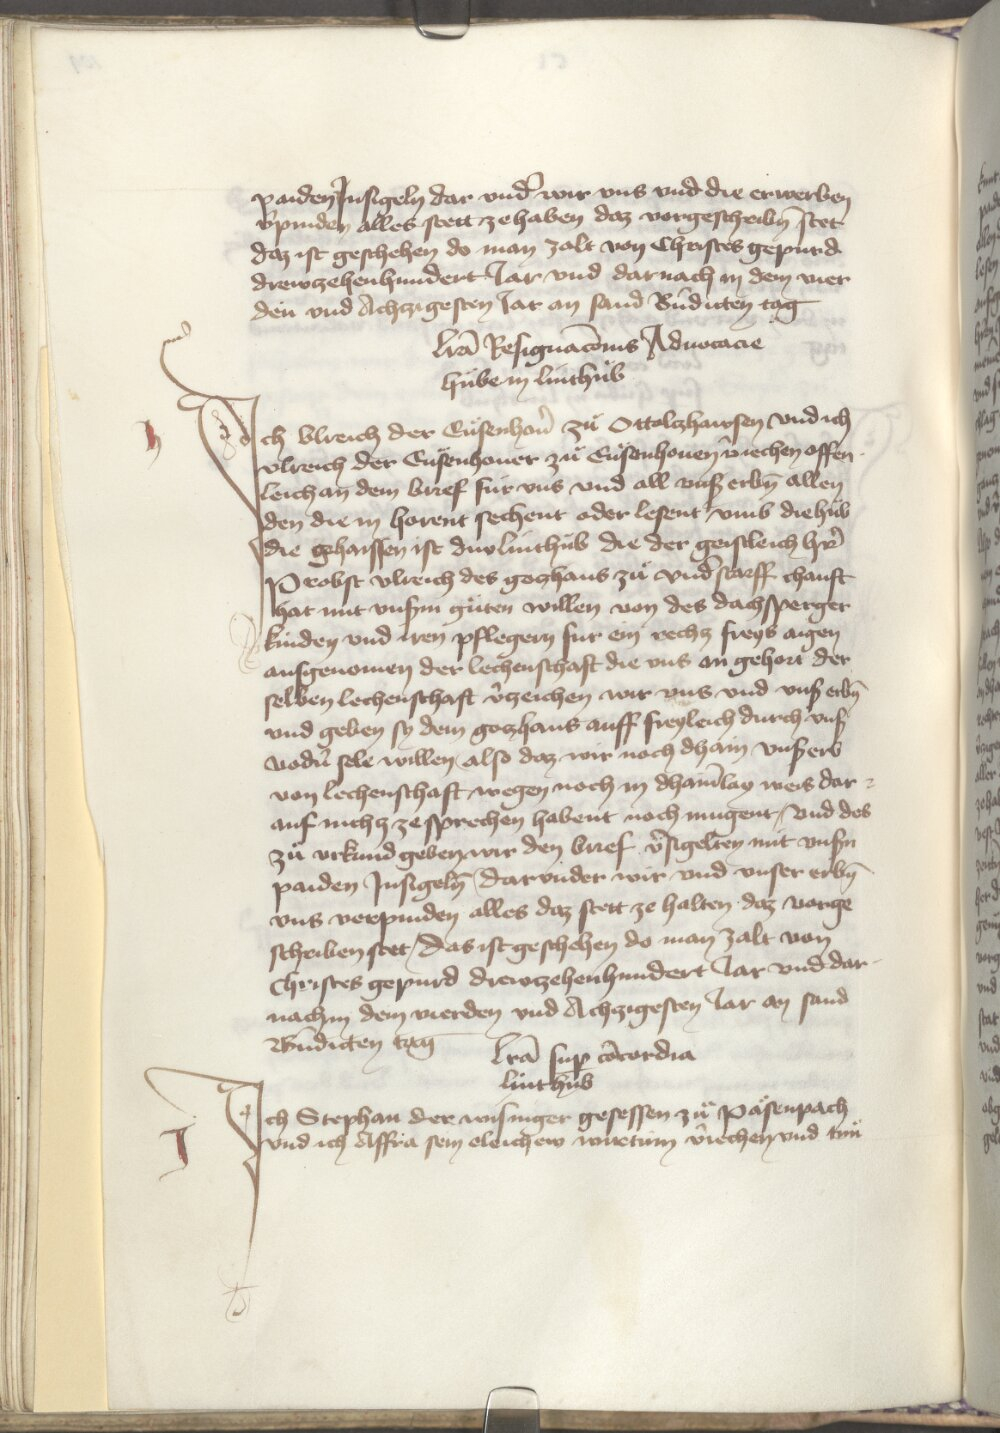 paiden Insigeln dar und' wir uns und die erwerben
v'pinden alles stett ze haben daz vorgeschribn stet
daz ist geschehen do man zalt von Christes gepurd
drewzehenhundert Jar und darnach in dem vier
den und Achzigesten Jar an sand Bndicten tag
Lra Resignaconis Advocacie
hube in linthub
Ich Ulreich der Eusenhou' zu Ottoltzhawsen und ich
ulreich der Eusenhouer zu Eusenhouen v'iechen offen
leich an dem brief fur uns und all unß erbn allen
den die in horent sechent oder lesent umb die hub
die gehaissen ist die linthub die der geistleich h'r
Probst ulreich des gozhaus zu und'starff chauft
hat mit unsm guten willen von des dachsperger
kinden und iren pflegern fur ein rechz freys aigen
ausgenomen der lechenschaft die uns an gehort der
selben lechenschaft v'zeichen wir uns und unß erbn
und geben sy dem gozhaus auff freyleich durch unß
vodn sele willen also daz wir noch dhain unß erb
von lechenschaft wegen noch in dhainlay weis dar-
auf nichz ze sprechen habent noch mugent / Und des
zu urkund geben wir den brief v'sigelten mit unsm
paiden Insigeln / darunder wir und unser erbn
uns verpinden alles daz stett ze halten daz vorge
schriben stet / Das ist geschehen do man zalt von
Christes gepurd drewzehenhundert Jar und dar-
nach in dem vierden und Achzigesten Jar an sand
Bndicten tag
Lra sup concordia
linthub
Ich Stephan der wisinger gesessen zu Pasenpach
und ich Affra sein eleichew wirttin v'iechen und tun